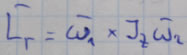 L̄ᵣ = ω̄₁ × J_z ω̄₂